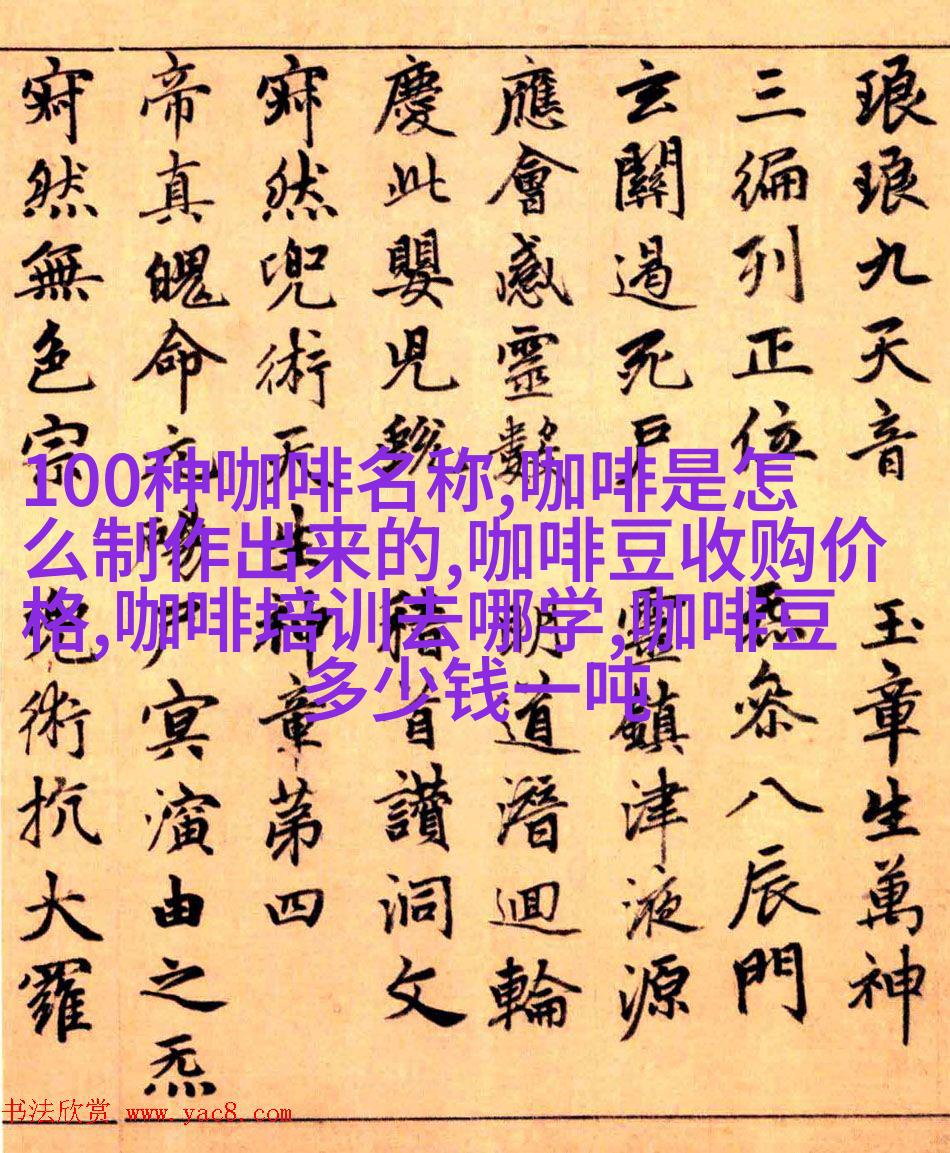 琅琅九天音 玉章生萬神
三徧列正位 叅八辰門
玄關過死戶 靈鎮津液源
應會感靈數 明道潛迴輪
慶此嬰兒 稽首讃洞文
寂然兜術天生神章第四
帝真魄命元 冥演由之炁
寂然無色宗 兜術抗大羅
100种咖啡名称,咖啡是怎
么制作出来的,咖啡豆收购价
格,咖啡培训去哪学,咖啡豆
多少钱一吨
书法欣赏 www.yac8.com